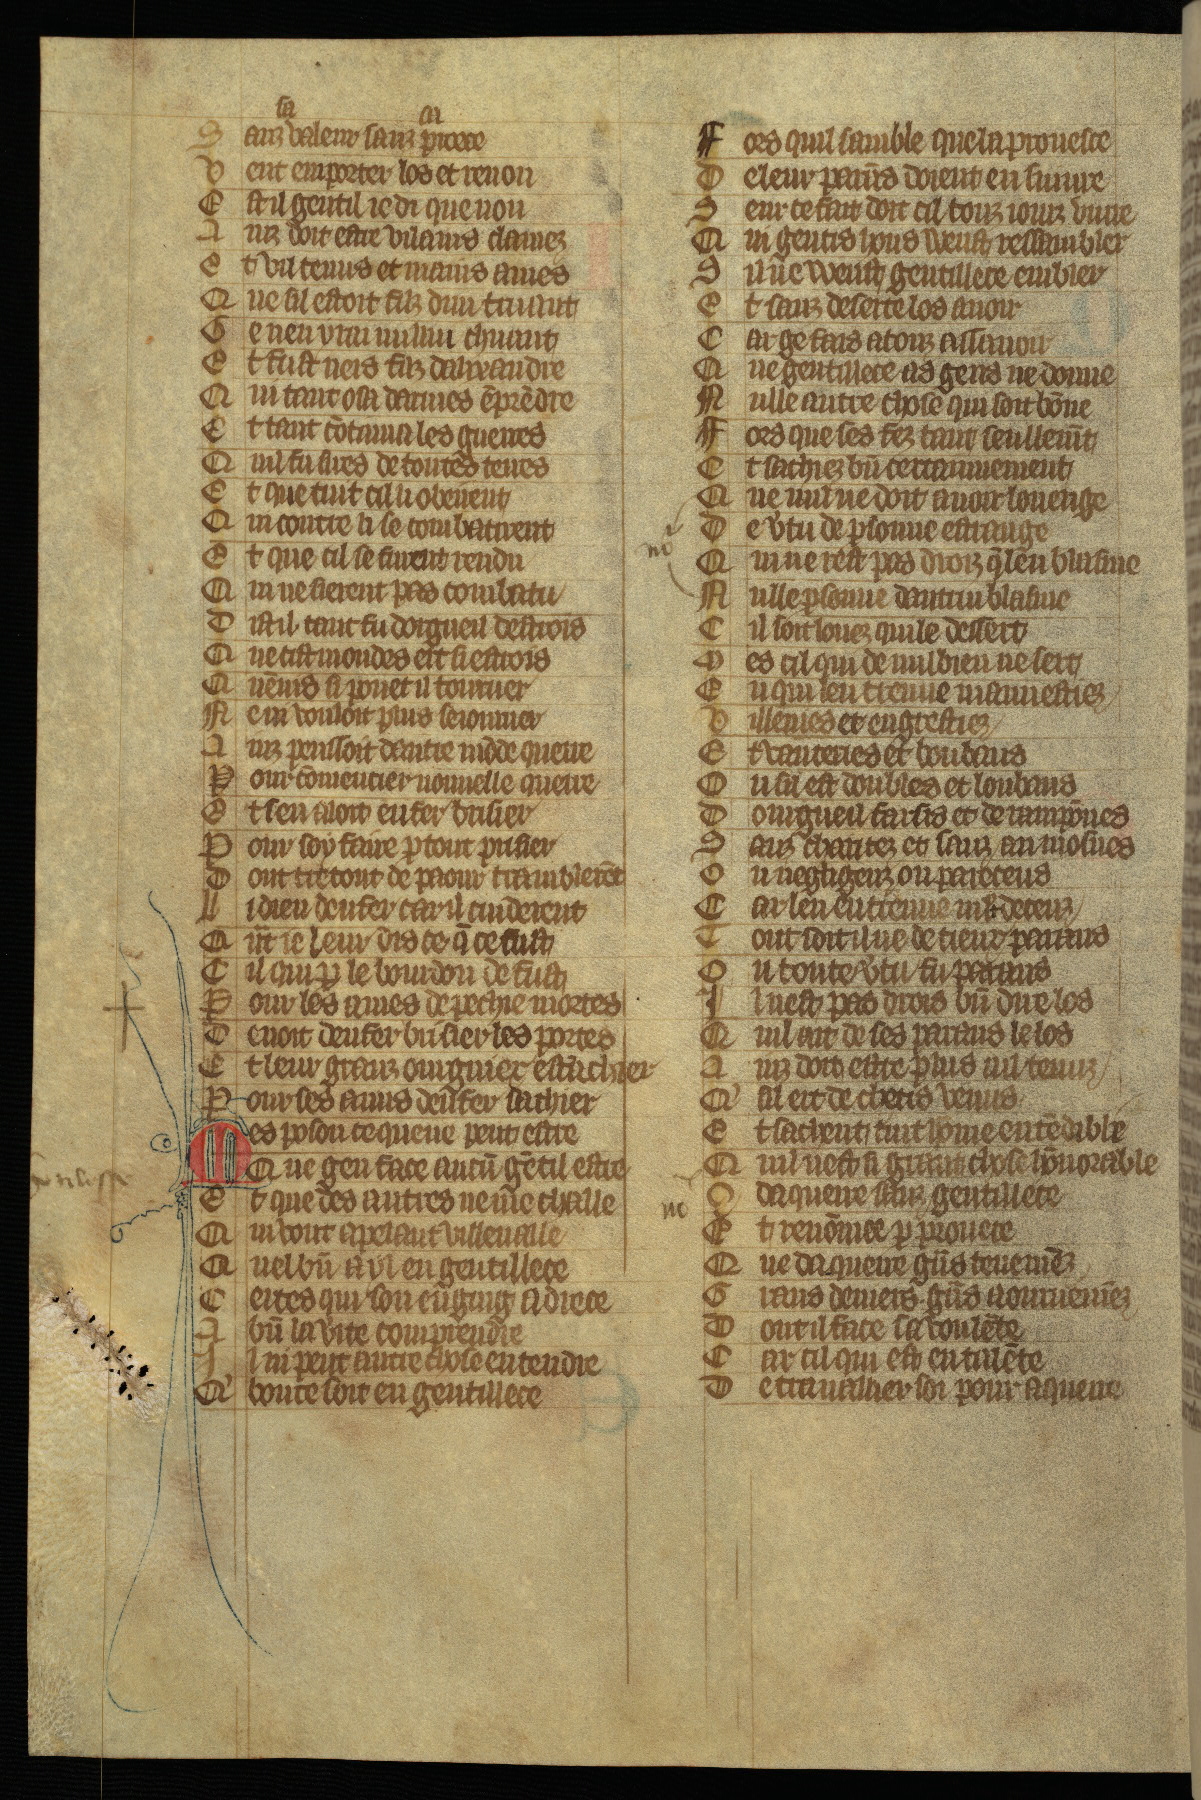 sa sa
S anz valeur sanz proece
V eut emporter los et renon
E st il gentil ie di que non
A inz doit estre vilains clamez
E t vil tenus et mains ames
Q ue sil estoit filz dun truant
G e nen vrai nullui chuant
E t fust neis filz dalixandre
Q ui tant osa darmes e̅pre̅dre
E t tant co̅tinua les guerres
Q uil fu sires de toutes terres
E t que tuit cil li obeirent
Q ui contre li se combatirent
E t que cil se furent rendu
Q ui ne sierent pas combatu
D ist il tant fu dorgueil destrois
Q ue cist mondes ert si estrois
Q ue̅uis si pouet il tourner
N e ni vouloit plus seiourner
A inz penssoit dautre mo̅de querre
P our comencier nouvelle guerre
E t sen aloit enfer brisier
P our soy faire p tout prisier
D ont trestout de paour tramblere̅t
L i dieu denfer car il cuiderent
Q nt ie leur dis ce q̅ ce fust
C il qui p le bourdon de fust
P our les ames de pechie mortes
D evoit denfer brisier les portes
E t leur granz ourguiez estachier
P our ses amis denfer sachier
M es poson ce que ne peut estre
Q ue gen face aucu̅ ge̅til estre
E t que des autres ne me chaille
Q ui vont apelant villenaille
Q uel bn̅ a y̅l en gentillece
C ertes qui son en̅ging adrece
A bn̅ la verite comprendre
I l ni peut autre chose entendre
Q' bonte soit en gentillece
F ors quil samble que la prouesce
D e leur paren̅s doient ensuivre
S eur ce fait doit cil touz iours vivre
Q ui gentis hons weust ressambler
S il ne weust gentillece embler
E t sanz deserte los avoir
C ar ge fais a touz assavoir
Q ue gentillece as gens ne donne
N ulle autre chose qui soit bo̅ne
F ors que ses fez tant seullem̅t
E t sachiez bn̅ certainnement
Q ue nul ne doit avoir louenge
D e v̾tu de psonne estrange
no̅
Q ui ne rest pas droiz q̅ len blasme
N ulle psonne dautrui blasme
C il soit louez qui le dessert
M es cil qui de nul bien ne sert
E n qui len treuve mauvestiez
V illenies et engrestiez
E t vanteries et boubans
O u sil est doubles et loubans
D ourgueil farsis et de rampones
S anz charitez et sanz aumosnes
O u negligenz ou pareceus
C ar len en treuve mlt de ceuz
T out soit il ne de tieux parans
O u toute v̾tu fu parans
I l nest pas drois bn̅ dire los
Q uil ait de ses parans le los
A inz doit estre plus vil tenuz
Q' sil ert de chetis venus
E t sachent tuit home ente̅dible
Q uil nest si grant chose ho̅norable
no
D aquerre sanz gentillece
E t reno̅mee p prouece
Q ue daquerre gn̅s teneme̅z
G rans deniers gn̅s aorneme̅z
D ont il face sa voulente
C ar cil qui est entalente
D e travaillier soi pour aquerre